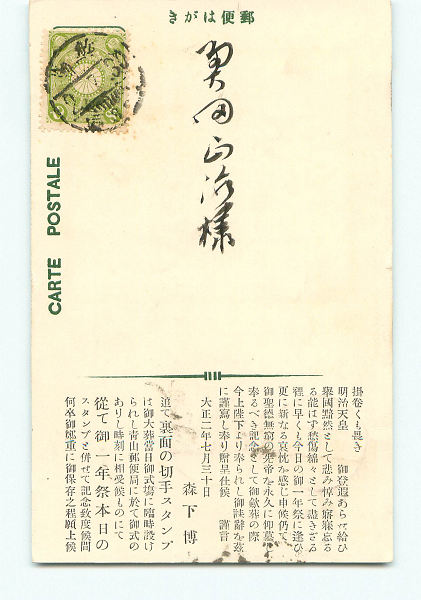 郵便はがき
CARTE POSTALE
奥田正治様
掛卷くも畏き
明治天皇 御登遐あらせ給ひ
擧國黯然として悲み悼み寤寐忘る
る能はず愁傷綿々として盡きざる
裡に早くも今日の御一年祭に逢ひ
更に新なる哀悼を感じ申候仍て
御聖德無窮の先帝を永久に仰慕し
奉るべき記念として御斂葬の際
今上陛下より奉られし御誄辭を茲
に謹寫し奉り貴呈仕候 謹言
大正二年七月三十日
森下博
追て裏面の切手スタンプ
は御大葬當日御式場に臨時設け
られし青山郵便局に於て御式の
ありし時刻に相受候ものにて
從て御一年祭本日の
スタンプを併せて記念致度候間
何卒御鄭重に御保存之程願上候